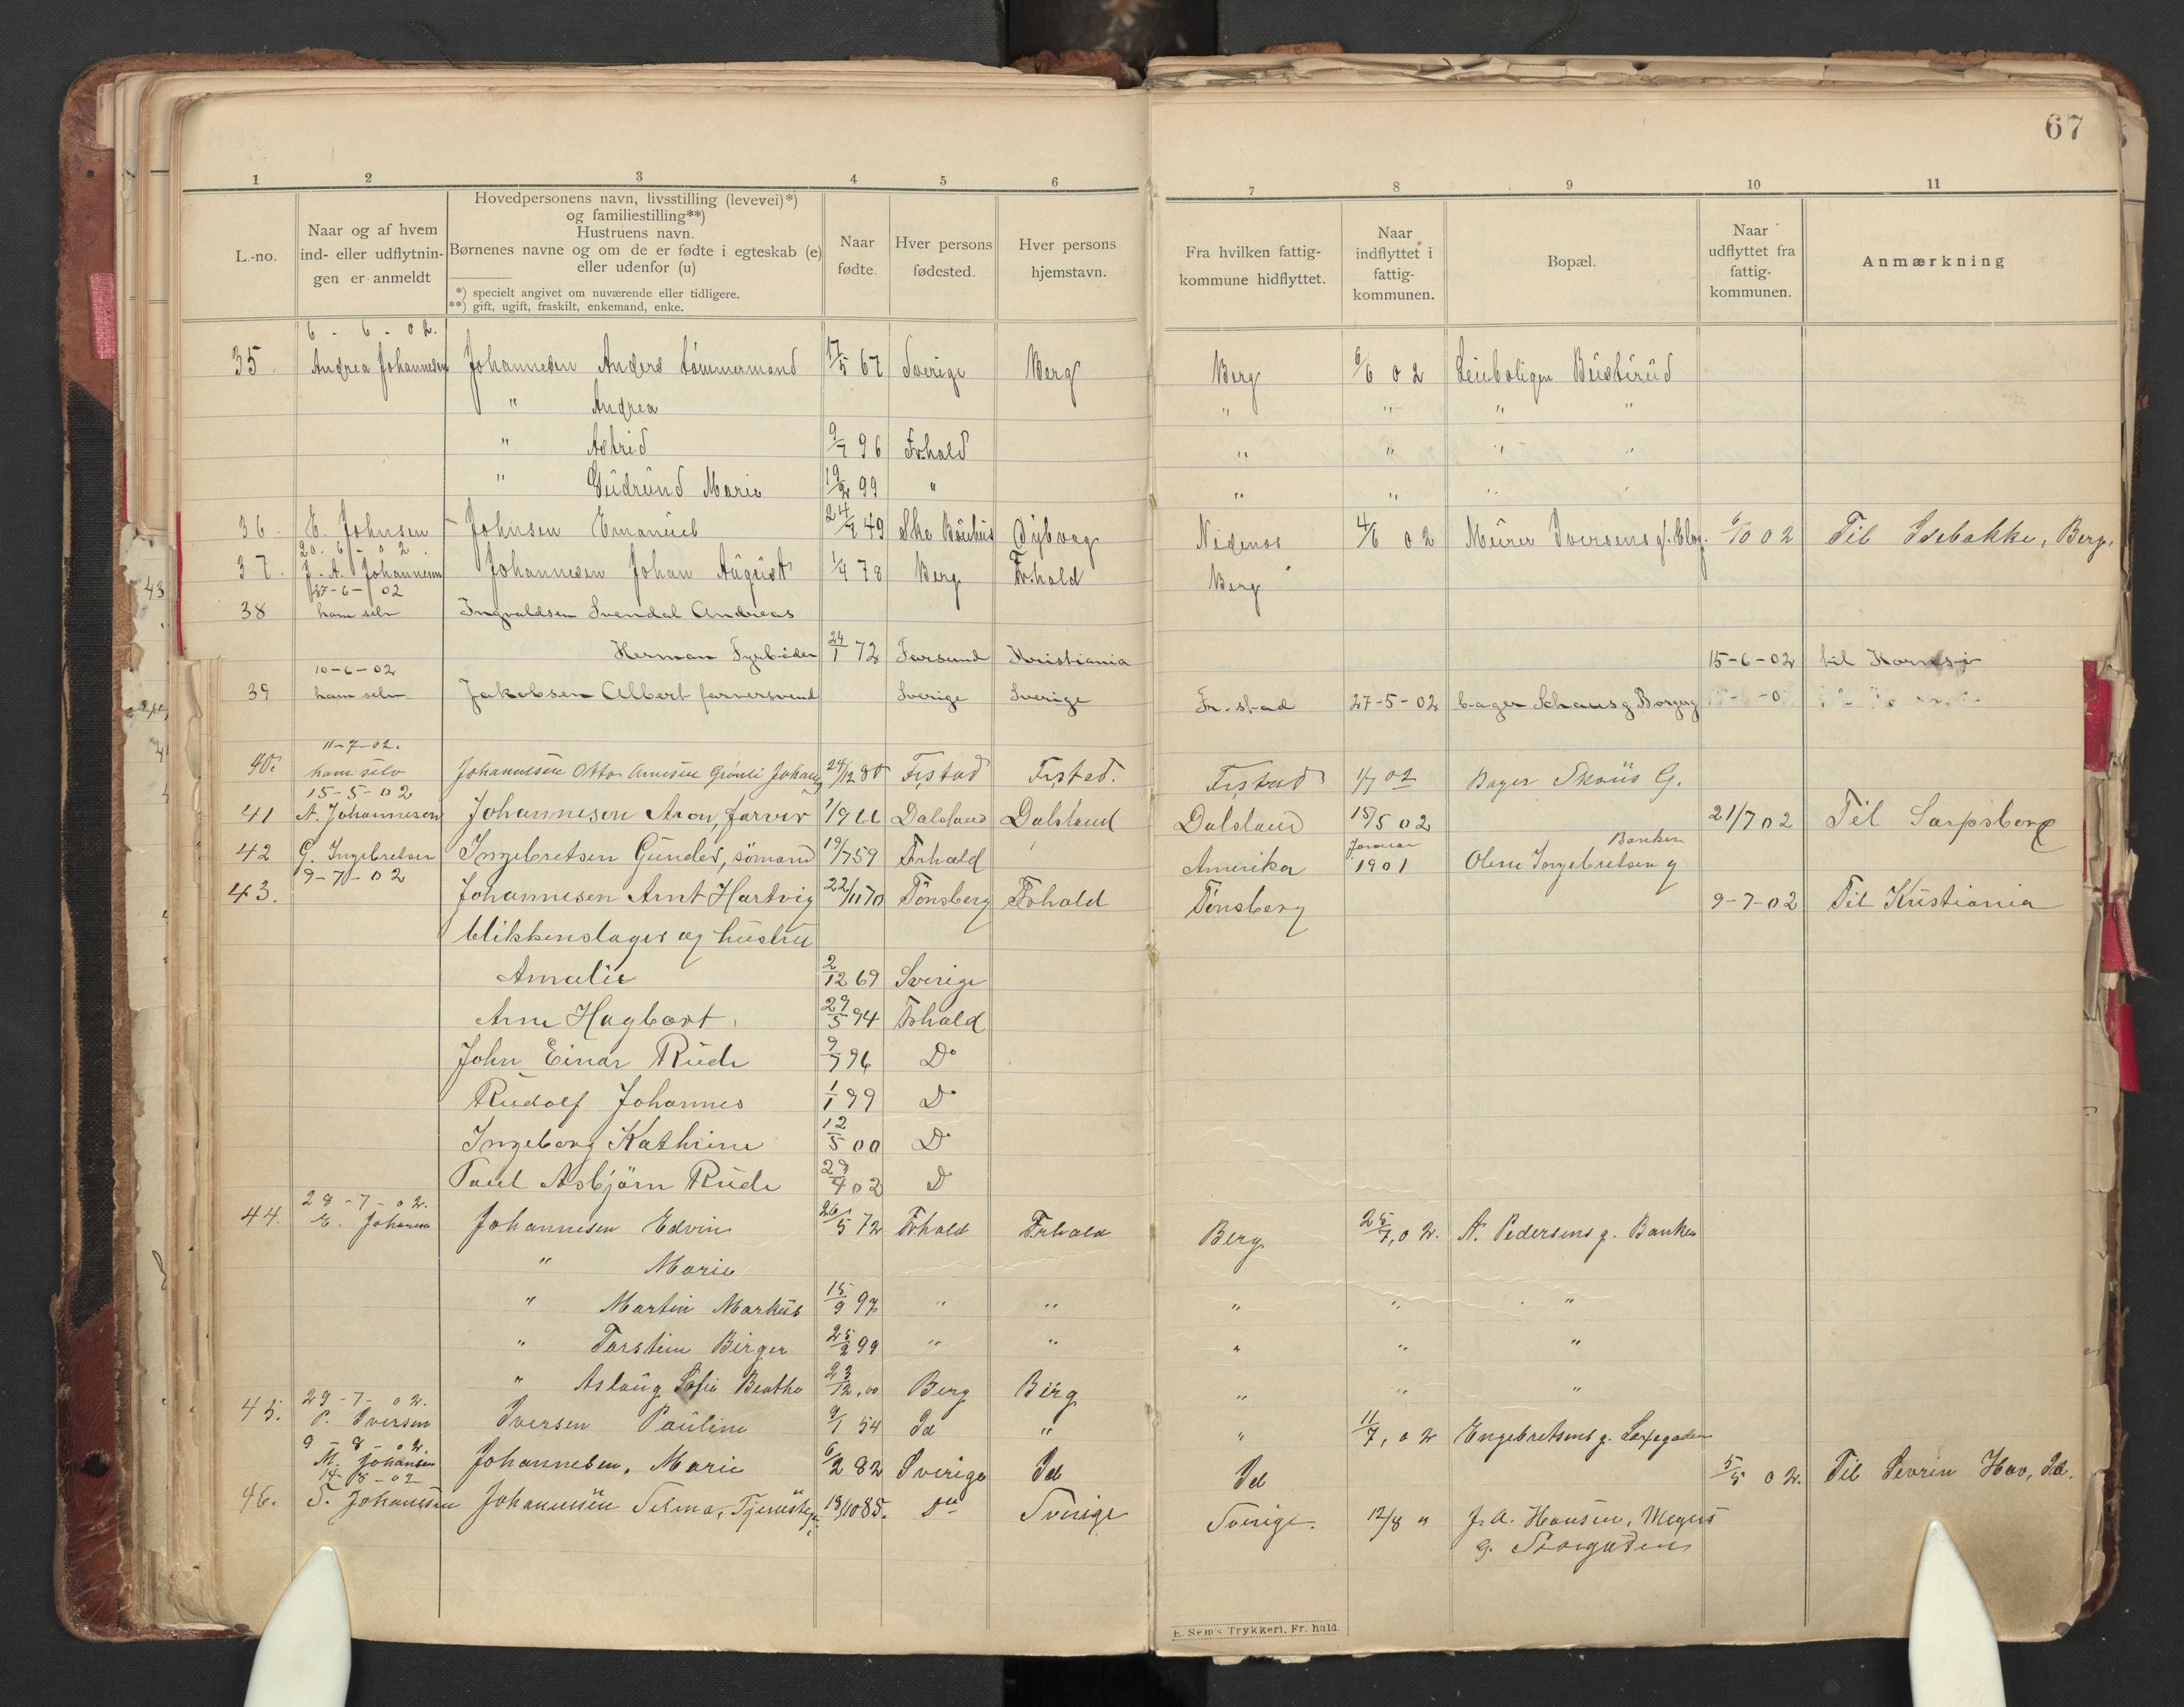 67
1 2 3 4 5 6 7 8 9 10 11
L.-no.
Naar og af hvem
ind- eller udflytnin-
gen er anmeldt
Hovedpersonens navn, livsstilling (levevei)*)
og familiestilling**)
Hustruens navn.
Børnenes navne og om de er fødte i egteskab (e)
eller udenfor (u)
*) specielt angivet om nuværende eller tidligere.
**) gift, ugift, fraskilt, enkemand, enke.
Naar
fødte.
Hver persons
fødested.
Hver persons
hjemstavn.
Fra hvilken fattig-
kommune hidflyttet.
Naar
indflyttet i
fattig-
kommunen.
Bopæl.
Naar
udflyttet fra
fattig-
kommunen.
Anmærkning
6 - 6 - 02.
35. Andrea Johannesen Johannesen Anders tømmermand 17/5 67 Sverige Berg Berg 6/6 02 Leieboligen Büsterüd
" Andrea " " " "
" Astrid 9/7 96 Frhald " " " "
" Güdründ Marie 19/2 99 " " " " "
36. E. Johnsen Johnsen Emanüel 24/7 49 Dybvag Nidenos 4/6 02 Mürer Iversens g. 6/10 02 Til Idebakke, Berg.
20. 6 - 02.
37. J. A. Johannesen Johannesen Johan Aügüst 1/4 78 Berg Frhald Berg
27-6-02
38 ham selv Ingvaldsen Svendal Andreas
Herman Fyrbøder 24/1 72 Farsund Kristiania 15-6-02 til Kornsjø
10-6-02
39 ham selv Jakobsen Albert farversvend Sverige Sverige Fr.stad 27-5-02 bager Schausg Borgerg
11-7-02.
40. ham selv Johannesen Otto Arnesen Grønli 24/12 80 Frstad Frstad. Frstad 1/7 02 Bager Skoüs G.
15-5-02
41 A. Johannesen Johannesen Aron, farver 1/9 66 Dalsland Dalsland Dalsland 15/5 02 21/7 02 Til Sarpsborg
42 G. Ingebretsen Ingebretsen Günder, sömand 19/7 59 Frhald Amerika Januar 1901 Olene Ingebretsen g Banken
9-7-02
43. Johannesen Arnt Hartvig 22/11 70 Tönsberg Frhald Tönsberg 9-7-02 Til Kristiania
blikkenslager og hüstru
Amalie 2/12 69 Sverige
Arne Hagbart 29/5 94 Frhald
John Einar Rüde 9/7 96 Do
Rüdolf Johannes 1/1 99 D
Ingeborg Kathrine 12/5 00 D
Paul Asbjörn Rüde 29/4 02 D
28-7-02.
44. E. Johannesen Johannesen Edvin 26/5 72 Frhald Frhald Berg 25/7, 02. A. Pedersens g. Banken
" Marie
" Martin Marküs 15/9 97 " " " " "
" Torstein Birger 25/2 99 " " " " "
" Aslaüg Sofie Beathe 23/12, 00 Berg Berg " " "
29-7-02.
45. P. Iversen Iversen Paüline 9/1 54 Id " " 11/7, 02 Engebretsens g.
9-8-02.
M. Johansen Johannesen, Marie 6/2 82 Sverige Id Id 5/5 02. Til Sevrin Hov, Id.
14-8-02
46. S. Johannesen Johannesen Selma, Tjeneste 13/10 85. Do Sverige Sverige. 12/8 " J. A. Hansen, Meyers
g. Storgaden
E. Sem's Trykkeri, Fr.hald.